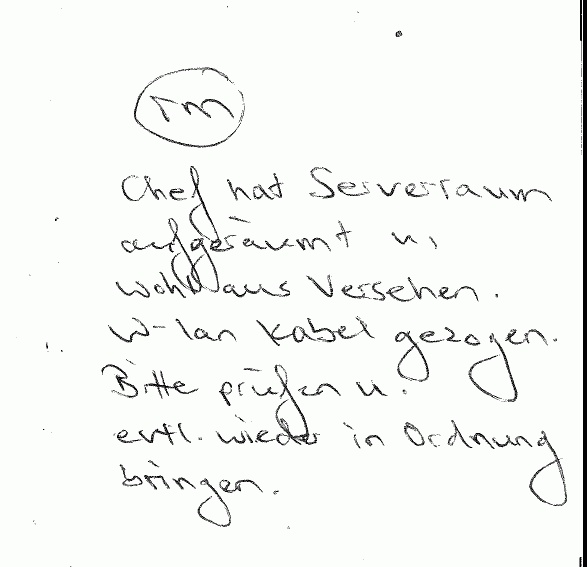 rm
Chef hat Serverraum
aufgeräumt u,
wohl aus Versehen.
W-lan Kabel gezogen.
Bitte prüfen u.
evtl. wieder in Ordnung
bringen.